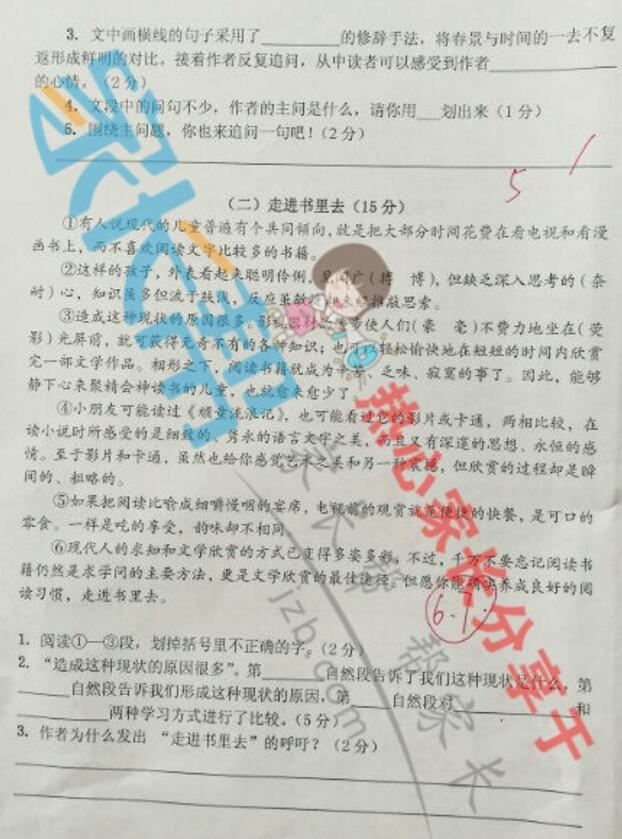 3. 文中画横线的句子采用了__________的修辞手法，将春景与时间的一去不复
返形成鲜明的对比。接着作者反复追问，从中读者可以感受到作者__________
的心情。（2分）
4. 文段中的问句不少，作者的主问是什么，请你用___划出来（1分）
5. 围绕主问题，你也来追问一句吧！（2分）
5 1
（二）走进书里去（15分）
①有人说现代的儿童普遍有个共同倾向，就是把大部分时间花费在看电视和看漫
画书上，而不喜欢阅读文字比较多的书籍。
②这样的孩子，外表看起来聪明伶俐，见闻广（搏 博），但缺乏深入思考的（奈
耐）心，知识虽多但流于肤浅，反应虽敏 推敲思索。
③造成这种现状的原因很多。影视 步使人们（豪 毫）不费力地坐在（荧
影）光屏前，就可获得无奇不有的各种知识；也可 轻松愉快地在短短的时间内欣赏
完一部文学作品。相形之下，阅读书籍就成为辛苦、乏味、寂寞的事了。因此，能够
静下心来聚精会神读书的儿童，也就愈来愈少了。
④小朋友可能读过《顽童流浪记》，也可能看过它的影片或卡通，两相比较，在
读小说时所感受的是细致的、隽永的语言文字之美，而且又有深邃的思想、永恒的感
情。至于影片和卡通，虽然也给你感觉艺术之美和另一种震撼，但欣赏的过程却是瞬
间的、粗略的。
⑤如果把阅读比喻成细嚼慢咽的宴席，电视前的观赏就是便捷的快餐，是可口的
零食。一样是吃的享受，韵味却不相同。
⑥现代人的求知和文学欣赏的方式已变得多姿多彩，不过，千万不要忘记阅读书
籍仍然是求学问的主要方法，更是文学欣赏的最佳途径。但愿你能 养成良好的阅
读习惯，走进书里去。
1. 阅读①—③段，划掉括号里不正确的字。（2分）
2. “造成这种现状的原因很多”。第______自然段告诉了我们这种现状是什么，第
______自然段告诉我们形成这种现状的原因，第_____自然段对__________和
__________两种学习方式进行了比较。（5分）
3. 作者为什么发出 “走进书里去”的呼吁？（2分）
家长帮
家长帮 帮家长
jzb.com
热心家长分享于